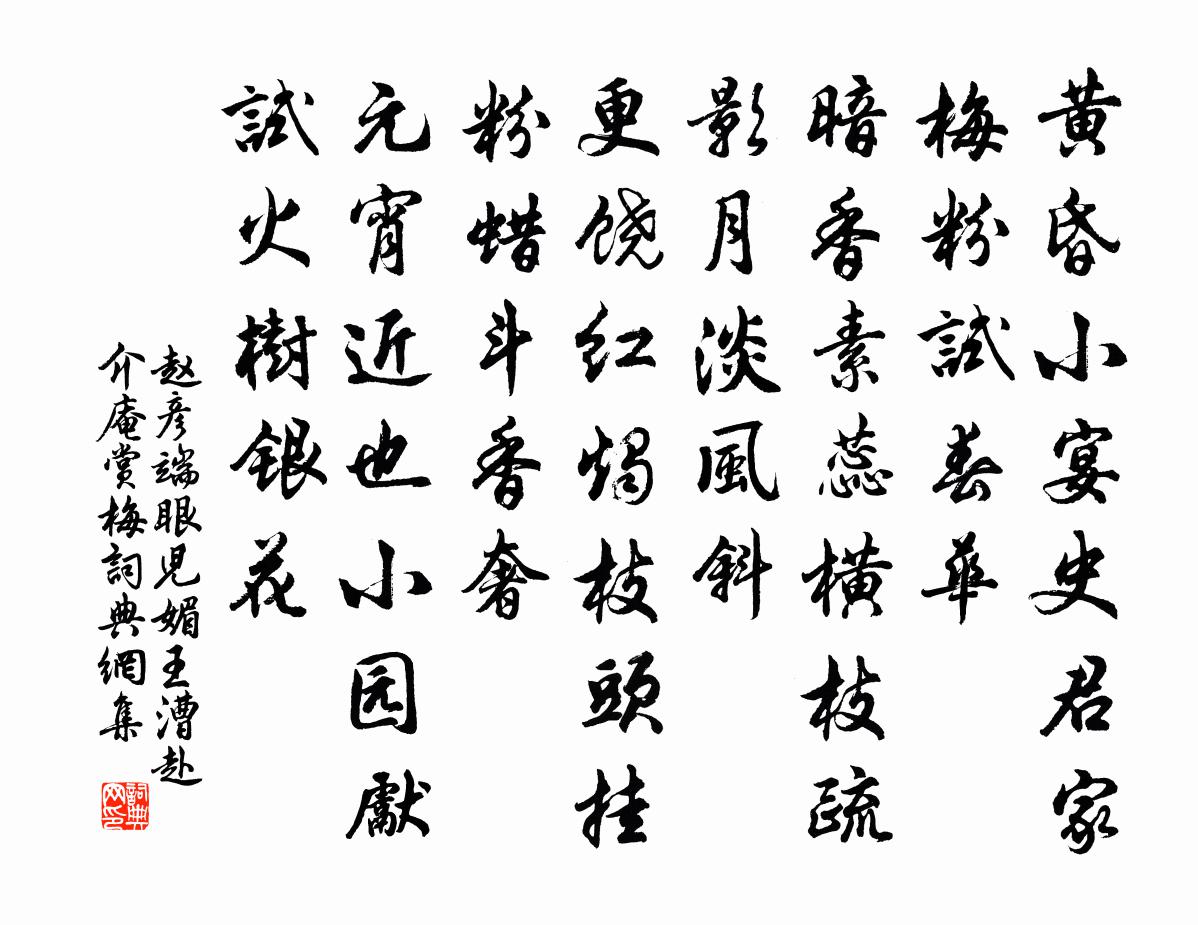 黄昏小宴史君家
梅粉試春華
暗香素蕊橫枝疏
影月淡風斜
更饶红燭枝頭挂
粉蜡斗香奢
元宵近也小园獻
試火樹銀花
赵彦端眼児媚王漕赴
介庵赏梅詞典網集
詞典
网印